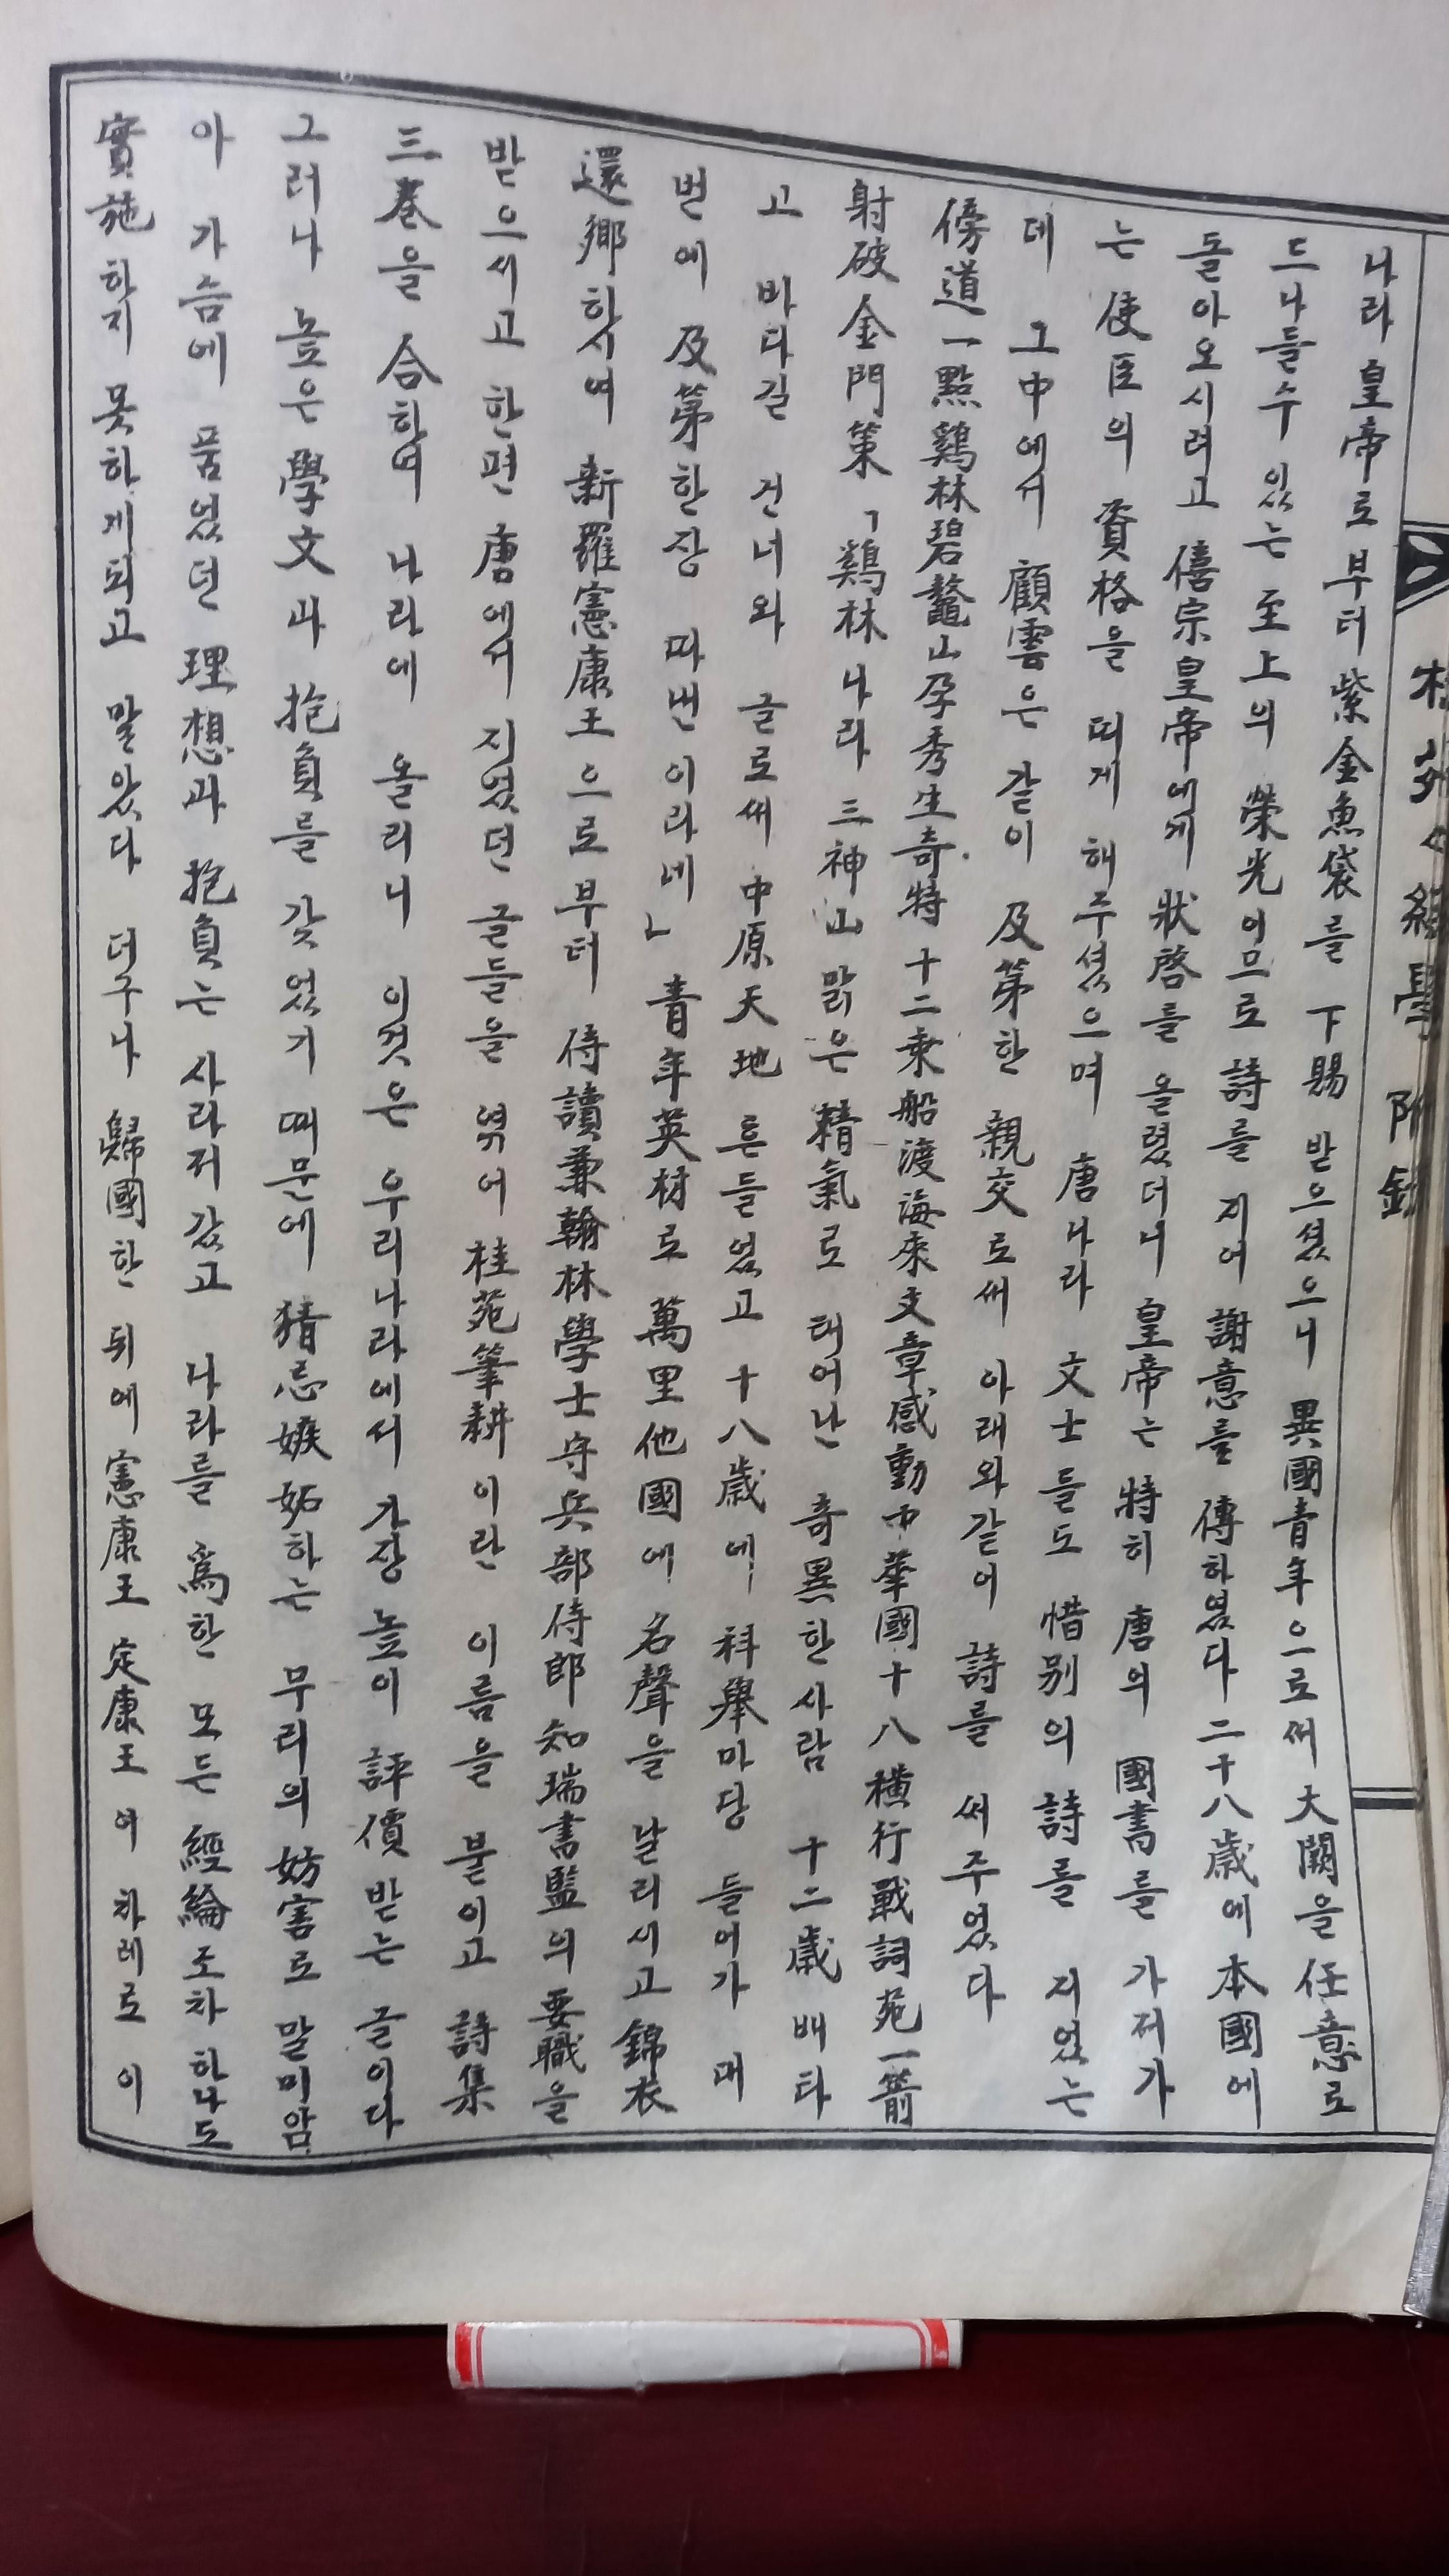 나라 皇帝로 부터 紫金魚袋를 下賜 받으셨으니 異國青年으로써 大闕을 任意로
드나들수 있는 至上의 榮光이므로 詩를 지어 謝意를 傳하였다 二十八歲에 本國에
돌아오시려고 僖宗皇帝에게 狀啓를 올렸더니 皇帝는 特히 唐의 國書를 가져가
는 使臣의 資格을 띠게 해주셨으며 唐나라 文士들도 惜別의 詩를 지었는
데 그中에서 顧雲은 같이 及第한 親交로써 아래와같이 詩를 써주었다
傍道一點鷄林碧鼇山孕秀生奇特十二乘船渡海來文章感動中華國十八橫行戰詞苑一箭
射破金門策「鷄林나라 三神山 맑은 精氣로 태어난 奇異한사람 十二歲 배타
고 바다길 건너와 글로써 中原天地 흔들었고 十八歲에 科擧마당 들어가 대
번에 及第한장 따번이라네」 青年英材로 萬里他國에 名聲을 날리시고 錦衣
還鄉하시여 新羅憲康王으로부터 侍讀兼翰林學士守兵部侍郎知瑞書監의 要職을
받으시고 한편 唐에서 지였던 글들을 엮어 桂苑筆耕이란 이름을 붙이고 詩集
三卷을 合하여 나라에 올리니 이것은 우리나라에서 가장높이 評價받는 글이다
그러나 높은 學文과 抱負를 갖었기 때문에 猜忌嫉妬하는 무리의 妨害로 말미암
아 가슴에 품었던 理想과 抱負는 사라저갔고 나라를 爲한 모든 經綸조차 하나도
實施하지 못하게되고 말았다 더구나 歸國한 뒤에 憲康王 定康王이 차레로 이